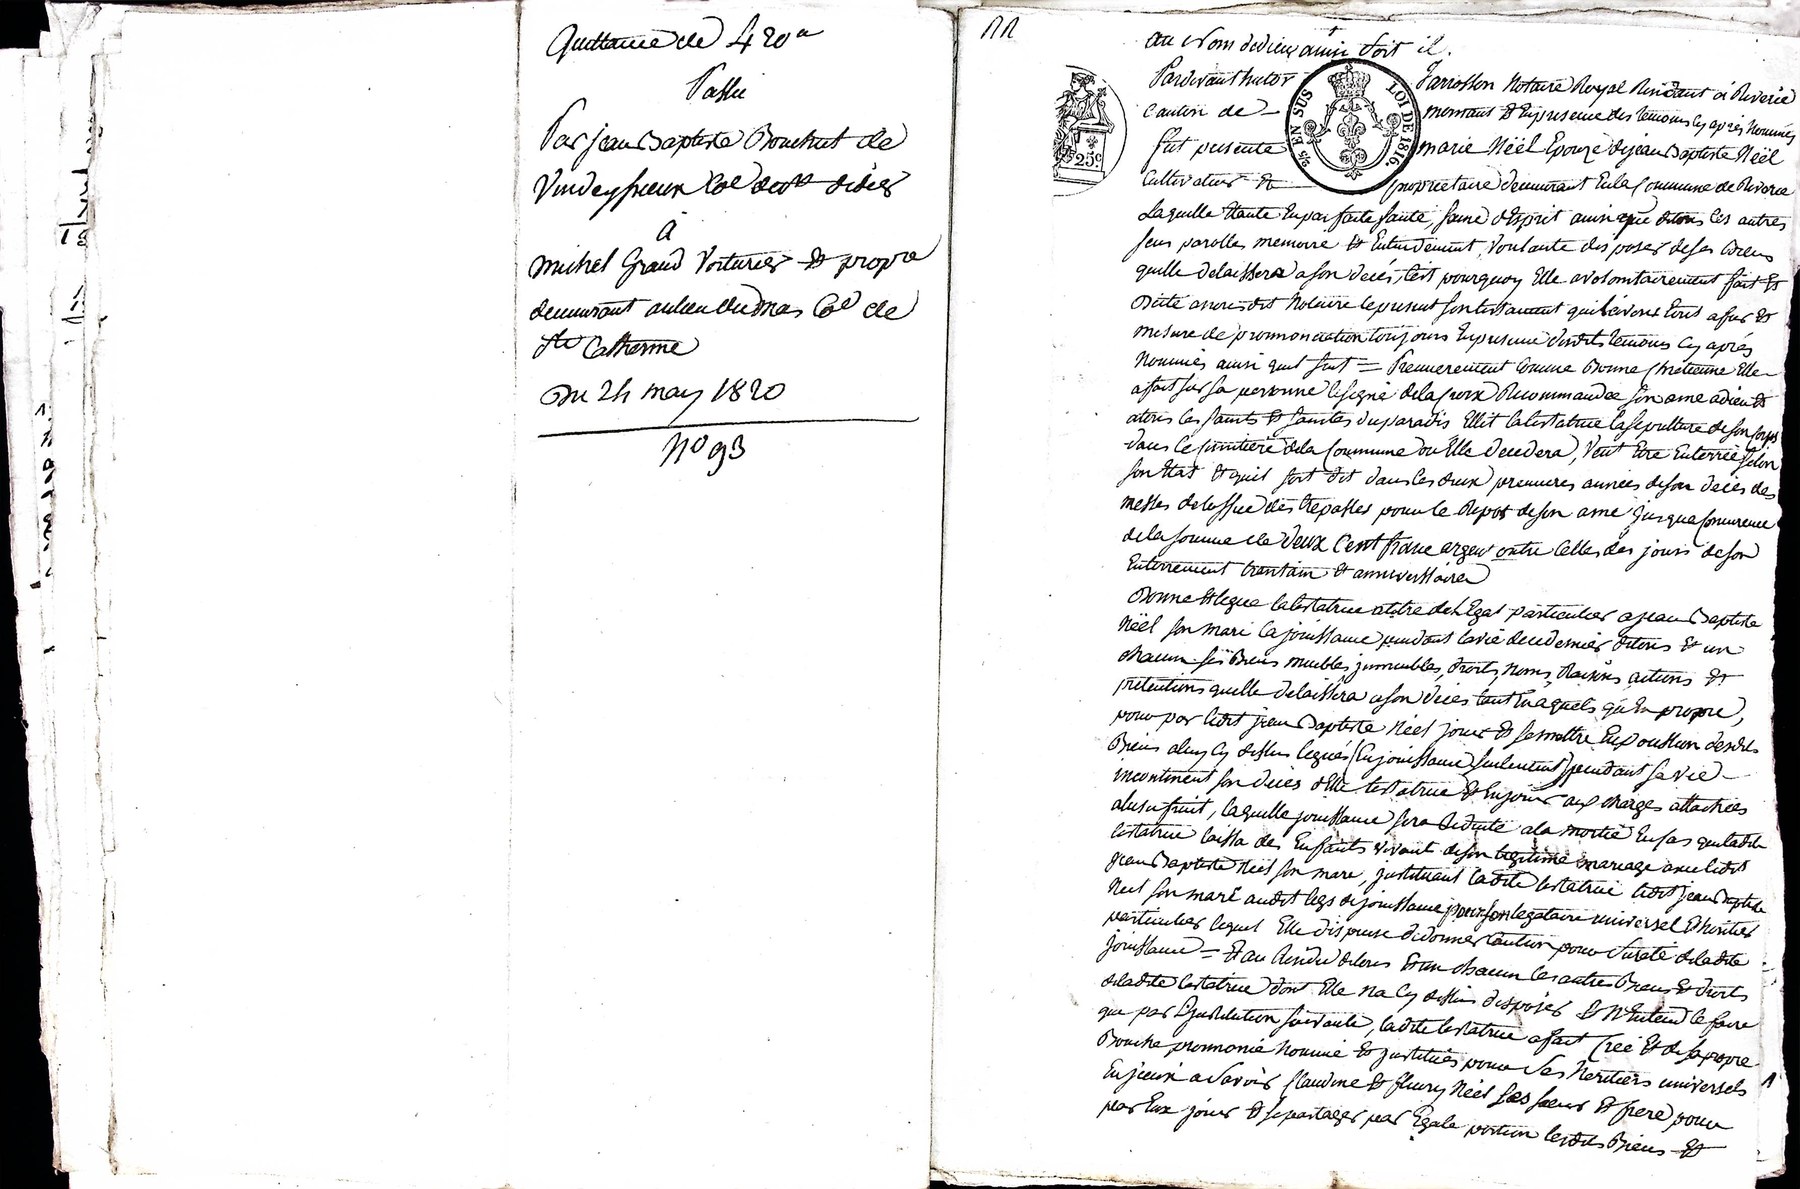 Quittance de 420#
Passée
Par jean Baptiste Bouchut de
Vindeyssieux Coe de st didier
à
michel Grand Voiturier et propre
demeurant au lieu du mas Coe de
ste Catherine
Du 24 may 1820
No 93
au Nom de dieu ainsi soit il.
Pardevant Notaire Royal Résidant à Riverie
canton de mornant et En presence des temoins cy après Nommés
fut presente marie Néël Epouze de jean Baptiste Néël
cultivateur et propriétaire demeurant En la Commune de Riverie
25c
% EN SUS LOI DE 1816.
Laquelle Etante En parfaite santé, saine d'Esprit ainsi que de tous ces autres
sens parolles memoire et Entendement, Voulante disposer de ses Biens
quelle delaissera a son decés, C'est pourquoy Elle a volontairement fait et
Dicté a nous dit Notaire le present son testament qui l'avons Ecrit a fur et
mesure de pronnonciation toujours En presence desdits temoins cy après
Nommés ainsi quil suit = Premierement comme Bonne Chrétienne Elle
a fait sur sa personne le signe de la Croix Recommandée son ame a dieu et
a tous les saints et saintes du paradis Ellit la testatrice la sépulture de son Corps
dans le Cimitière de la Commune ou Elle decedera, Veut Etre Enterrée selon
son Etat et quil soit dit dans les deux premieres années de son decés des
messes de l'office des trepassés pour le Repos de son ame jusqua Concurrence
de la somme de deux Cent franc argent outre Celles des jours de son
Enterrement trentain et anniverssaire
Donne et legue la testatrice a titre de LEgat particulier a jean Baptiste
Néël son mari la jouissance pendant la vie de ce dernier de tous et un
chacun ses Biens meubles jmmeubles, droits, noms, Raisons actions et
pretentions quelle delaissera a son decés tant En aquets qu'En propre,
pour par ledit jean Baptiste Néël jouir et se mettre En possession desdits
Biens a luy cy dessus legués (En jouissance seulement) pendant sa vie
incontinent son decés d'Elle testatrice et En jouir aux charges attachées
a l'usufruit, laquelle jouissance sera Reduite a la moitié En cas que ladite
testatrice laissa des Enfants vivant de son legitime mariage avec ledit
jean Baptiste Néël son mari, jnstituant ladite testatrice ledit jean Baptiste
Néël son mari audit legs de jouissance pour son legataire universel et heritier
particulier lequel Elle dispense de donner Caution pour sureté de ladite
jouissance = Et au Résidu de tous et un chacun les autres Biens et droits
de ladite testatrice dont Elle n'a Cy dessus disposés et N'Entend le faire
que par l'jnstitution suivante, ladite testatrice a fait Créé Et de sa propre
Bouche pronnoncé Nommé et jnstitués pour ses heritiers universels
En jceux a savoir Claudine et fleury Néël ses sœur et frere pour
par Eux jouir et se partager par Egale portion lesdits Biens et